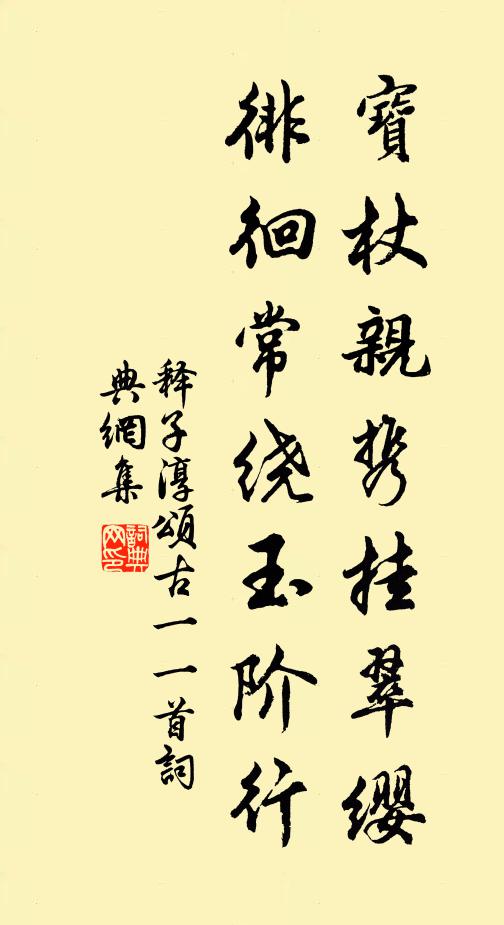 寶杖親携挂翠缨
徘徊常绕玉阶行
释子淳頌古一一首詞
典網集
詞典
网印